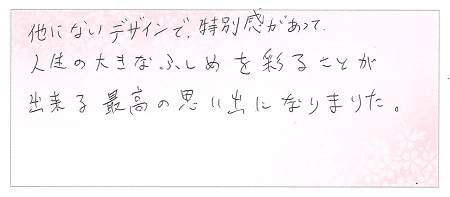 他にないデザインで、特別感があって、
人生の大きなふしめを彩ることが
出来る最高の思い出になりました。